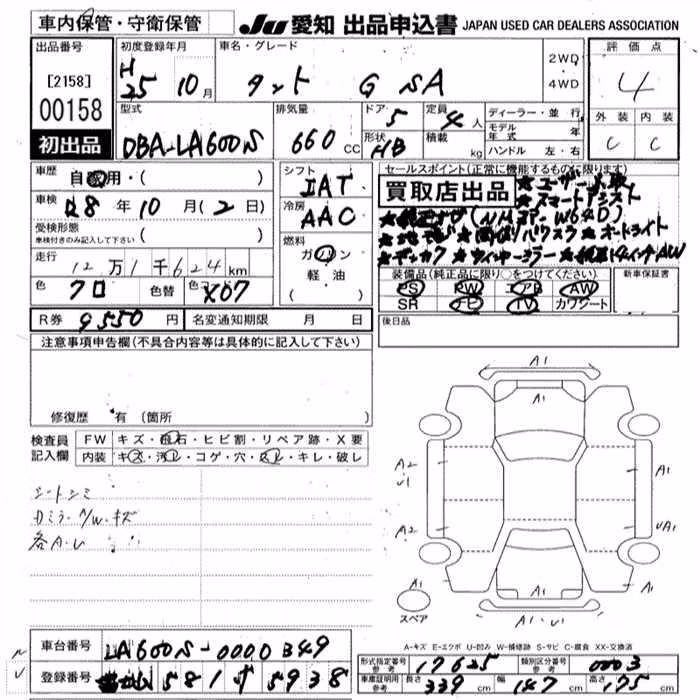 車内保管・守衛保管
JU 愛知 出品申込書 JAPAN USED CAR DEALERS ASSOCIATION
出品番号
[2158]
00158
初出品
初度登録年月
H 25 10月
車名・グレード
タント G SA
2WD
4WD
評価点
4
外装 内装
C C
型式
DBA-LA600S
排気量
660 CC
ドア 5
形状 HB
定員 4人
積載 kg
ディーラー・並行
モデル年式 年
ハンドル 左・右
車歴
自家用・( )
車検
R8年10月(2日)
受検形態
車検付きのみ記入して下さい ( )
走行
12万1千624km
色
クロ
色替
色コード
X07
シフト
IAT
冷房
AAC
燃料
ガソリン
軽油
セールスポイント(正常に機能するものに限ります)
買取店出品 ★ユーザー買取
★スマートアシスト
(NMZP-W64D)
★地デジ ★両側パワスラ ★オートライト
★ウィンカーミラー ★純正14インチAW
装備品(純正品に限り○をつけてください)
PS PW エアB AW
SR ナビ TV カワシート
新車保証書
後日品
R券 9550円
名変通知期限 月 日
注意事項申告欄(不具合内容等は具体的に記入して下さい)
修復歴 有 (箇所
検査員
記入欄
FW キズ・飛石・ヒビ割・リペア跡・X要
内装 キズ・汚レ・コゲ・穴・スレ・キレ・破レ
シートシミ
カミラ・A/W・キズ
各A・U
A1
A1
A2
U1
A1
A2
UA1
A1
A1
A1・U1
スペア
A-キズ E-エクボ U-凹み W-補修跡 S-サビ C-腐食 XX-交換済
車台番号
LA600S-0000349
登録番号
581 5938
形式指定番号 参考
17625
類別区分番号 参考
0003
車庫証明用 参考
長さ 339 cm
幅 147 cm
高さ 175 cm